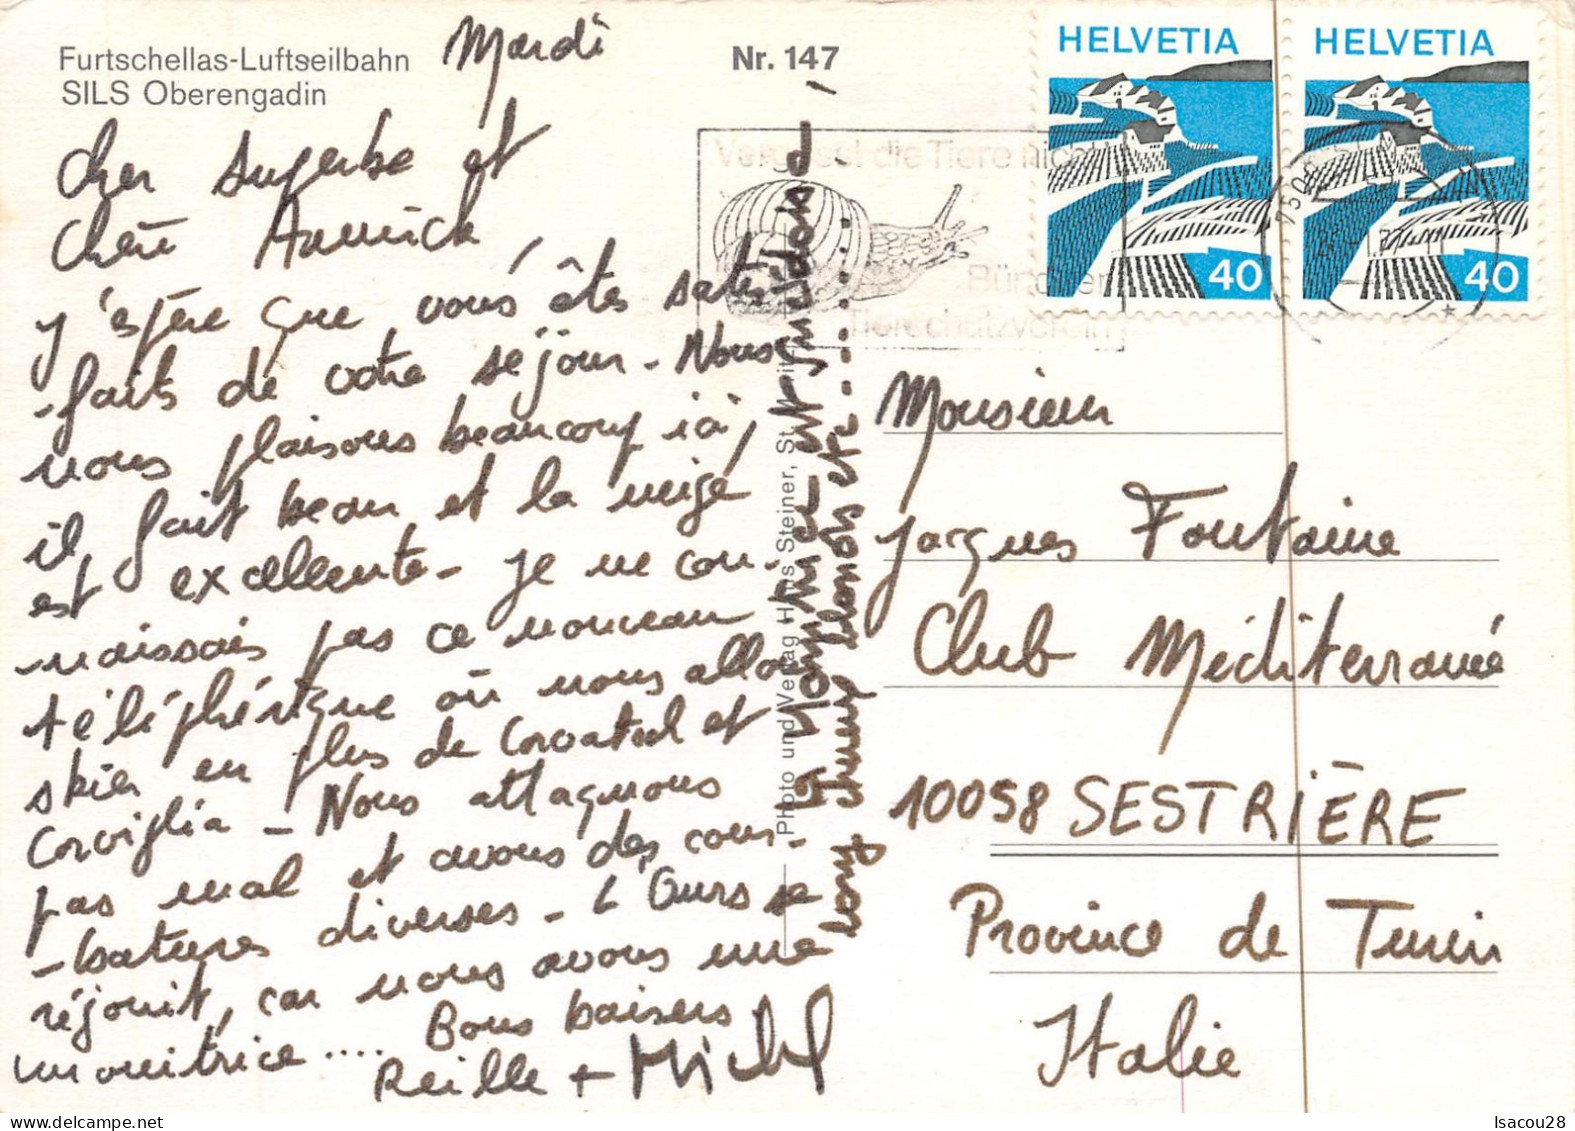 Furtschellas-Luftseilbahn
SILS Oberengadin
Mardi
Nr. 147
HELVETIA
40
HELVETIA
40
Vergesst die Tiere nicht
Bündner
Tierschutzverein
Cher Superbe et
Chère Annick
J'espère que vous êtes satis
-faits de votre séjour - Nous
nous plaisons beaucoup ici,
il fait beau et la neige
est excellente - Je ne con-
naissais pas ce nouveau
téléphérique où nous allons
skier en plus de Corvatsch et
Corviglia - Nous attaquons
pas mal et avons des cour-
-batures diverses - L'Ours se
réjouit, car nous avons une
monitrice .... Bons baisers
Reille + Michel
Photo und Verlag Hans Steiner, St. Moritz
chung etc.......
Monsieur
Jacques Fontaine
Club Méditerranée
10058 SESTRIÈRE
Province de Turin
Italie
Isacou28